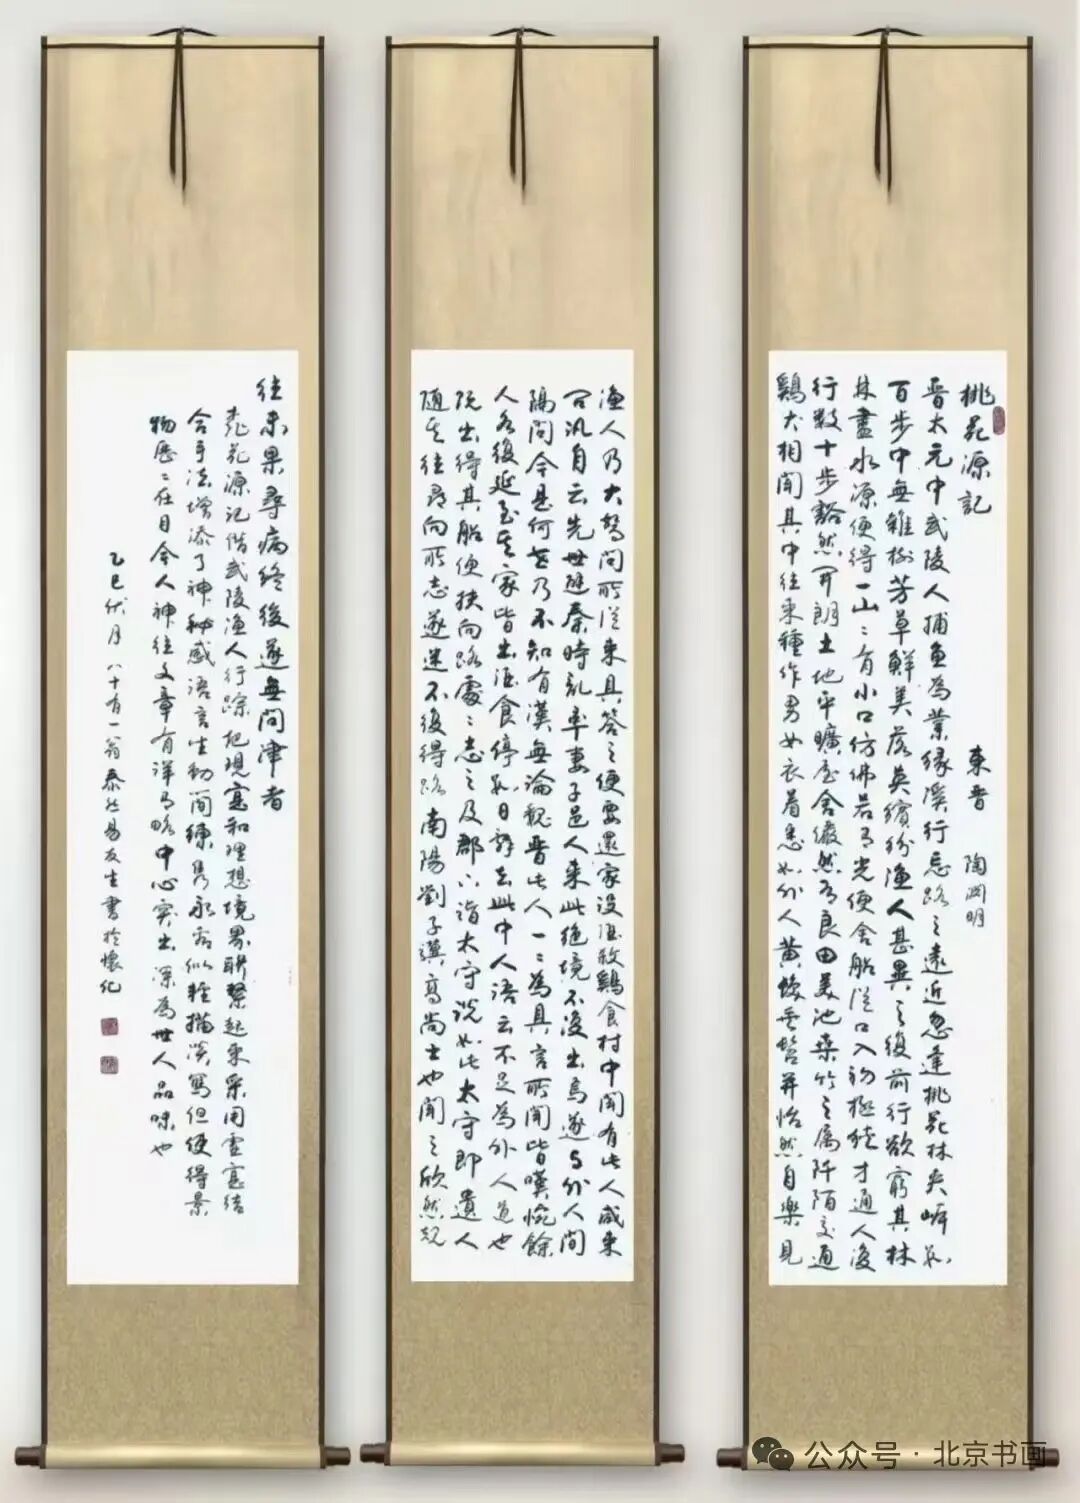 桃花源記
東晋 陶渊明
晋太元中武陵人捕鱼為業缘溪行忘路之遠近忽逢桃花林夹岸數
百步中無雜樹芳草鮮美落英缤纷渔人甚異之復前行欲窮其林
林盡水源便得一山山有小口仿佛若有光便舍船從口入初極狭才通人復
行数十步豁然開朗土地平曠屋舍儼然有良田美池桑竹之属阡陌交通
鷄犬相聞其中往来種作男女衣着悉如外人黄发垂髫并怡然自樂見
渔人乃大驚问所從来具答之便要還家设酒殺鷄食村中聞有此人咸来
问讯自云先世避秦時乱率妻子邑人来此绝境不復出焉遂与外人间
隔问今是何世乃不知有漢無論魏晋此人一一為具言所聞皆嘆惋餘
人各復延至其家皆出酒食停數日辞去此中人语云不足為外人道也
既出得其船便扶向路處處志之及郡下诣太守说如此太守即遣人
随其往尋向所志遂迷不復得路南陽劉子驥高尚士也聞之欣然规
往未果尋病终後遂無问津者
桃花源记借武陵渔人行踪把现實和理想境界聯繫起来采用虚實结
合手法增添了神秘感语言生動简練隽永看似輕描淡寫但使得景
物歷歷在目令人神往文章有详有略中心突出深為世人品味也
乙巳伏月八十有一翁泰然易友生書於懷化
公众号·北京书画